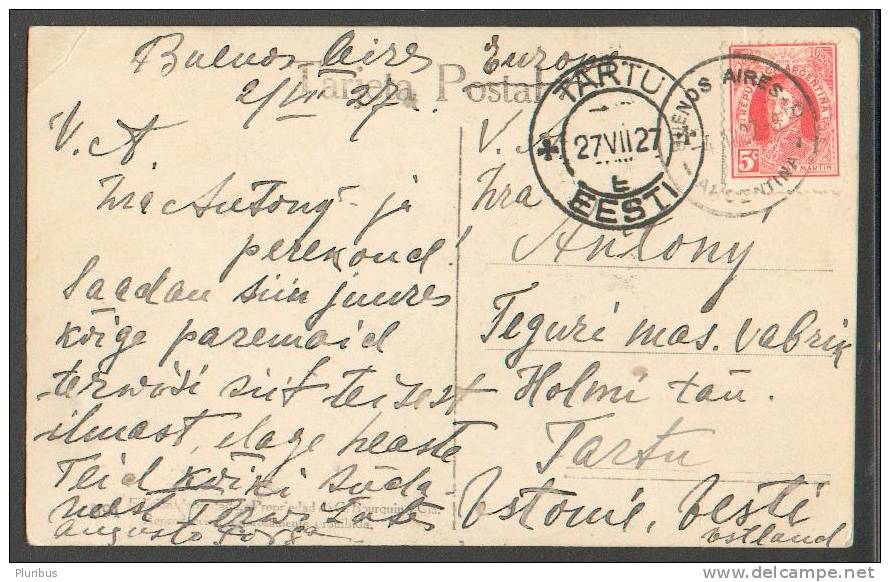 Buenos Aires
2/VI 27.
V. A.
Hra Antony ja
perekond!
Saadan siin juures
kõige paremaid
terwisi siit teisest
ilmast, elage heaste
Teid kõiki süda-
mest
Augusto
Tarjeta Postal
Propiedad C. Bourquin
Europa
V. A.
Hra
Antony
Teguri mas. vabrik
Holmi tän.
Tartu
Estonie, Eesti
Estland
TARTU
27 VII 27
E
EESTI
BUENOS AIRES
ARGENTINA
REPUBLICA ARGENTINA
5c
MARTIN
Pluribus
www.delcampe.net